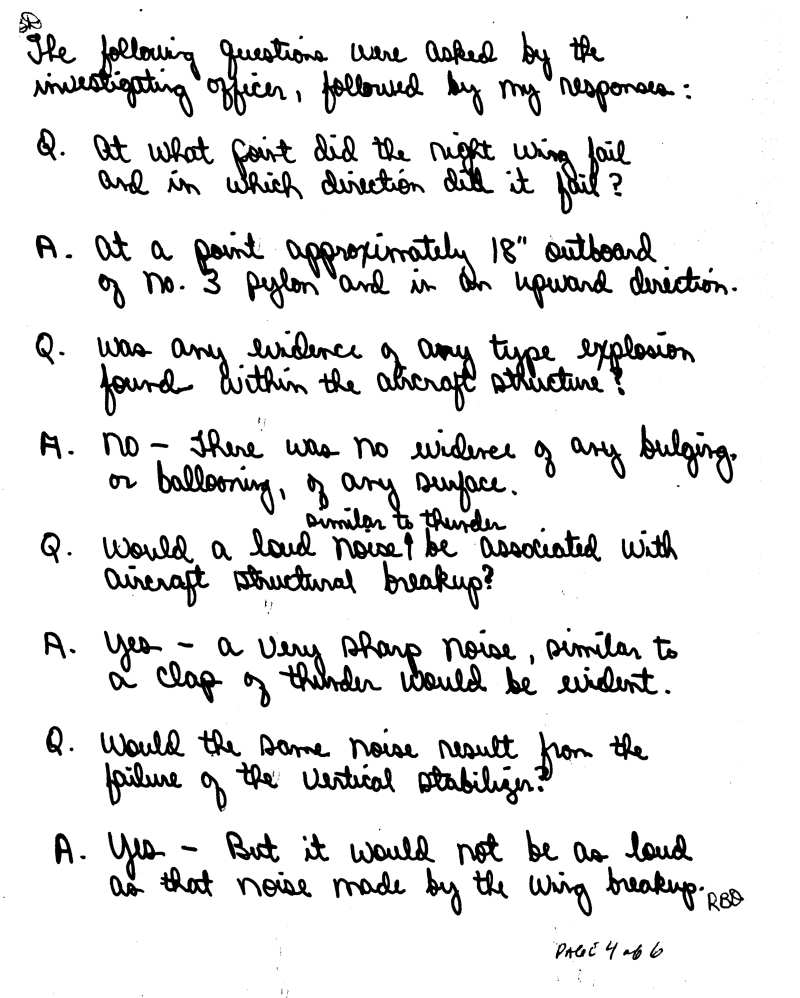 The following questions were asked by the
investigating officer, followed by my responses:
Q. At what point did the right wing fail
and in which direction did it fail?
A. At a point approximately 18" outboard
of no. 3 pylon and in an upward direction.
Q. Was any evidence of any type explosion
found within the aircraft structure?
A. No - There was no evidence of any bulging,
or ballooning, of any surface.
similar to thunder
Q. Would a loud noise↑ be associated with
aircraft structural breakup?
A. Yes - a very sharp noise, similar to
a clap of thunder would be evident.
Q. Would the same noise result from the
failure of the vertical stabilizer?
A. Yes - But it would not be as loud
as that noise made by the wing breakup.
RBD
PAGE 4 of 6